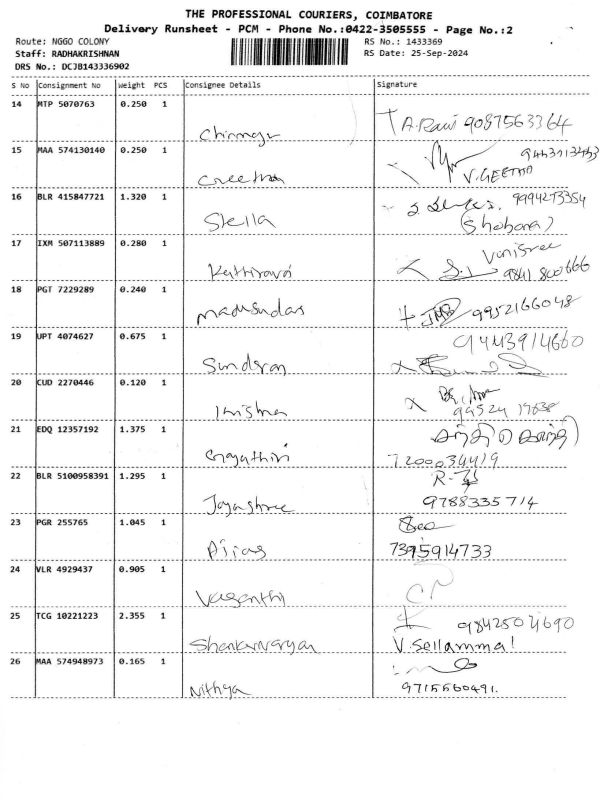 THE PROFESSIONAL COURIERS, COIMBATORE
Delivery Runsheet - PCM - Phone No.:0422-3505555 - Page No.:2
Route: NGGO COLONY RS No.: 1433369
Staff: RADHAKRISHNAN RS Date: 25-Sep-2024
DRS No.: DCJB143336902
S No Consignment No Weight PCS Consignee Details Signature
14 MTP 5070763 0.250 1
A. Ravi 9087563364
15 MAA 574130140 0.250 1
Geetha V.GEETHA
16 BLR 415847721 1.320 1
9994273354
Stella (Shobana)
17 IXM 507113889 0.280 1
Vanisree
Kathiravan 9841 800666
18 PGT 7229289 0.240 1
Madusudan 9952166048
19 UPT 4074627 0.675 1
9443914660
Sundaran
20 CUD 2270446 0.120 1
Krishna
21 EDQ 12357192 1.375 1
Gayathiri 7200034419
22 BLR 5100958391 1.295 1
Jayashree 9788335714
23 PGR 255765 1.045 1
7395914733
24 VLR 4929437 0.905 1
Vasanthi
25 TCG 10221223 2.355 1
9842504690
V. Sellammal
26 MAA 574948973 0.165 1
Nithya 9715560491.